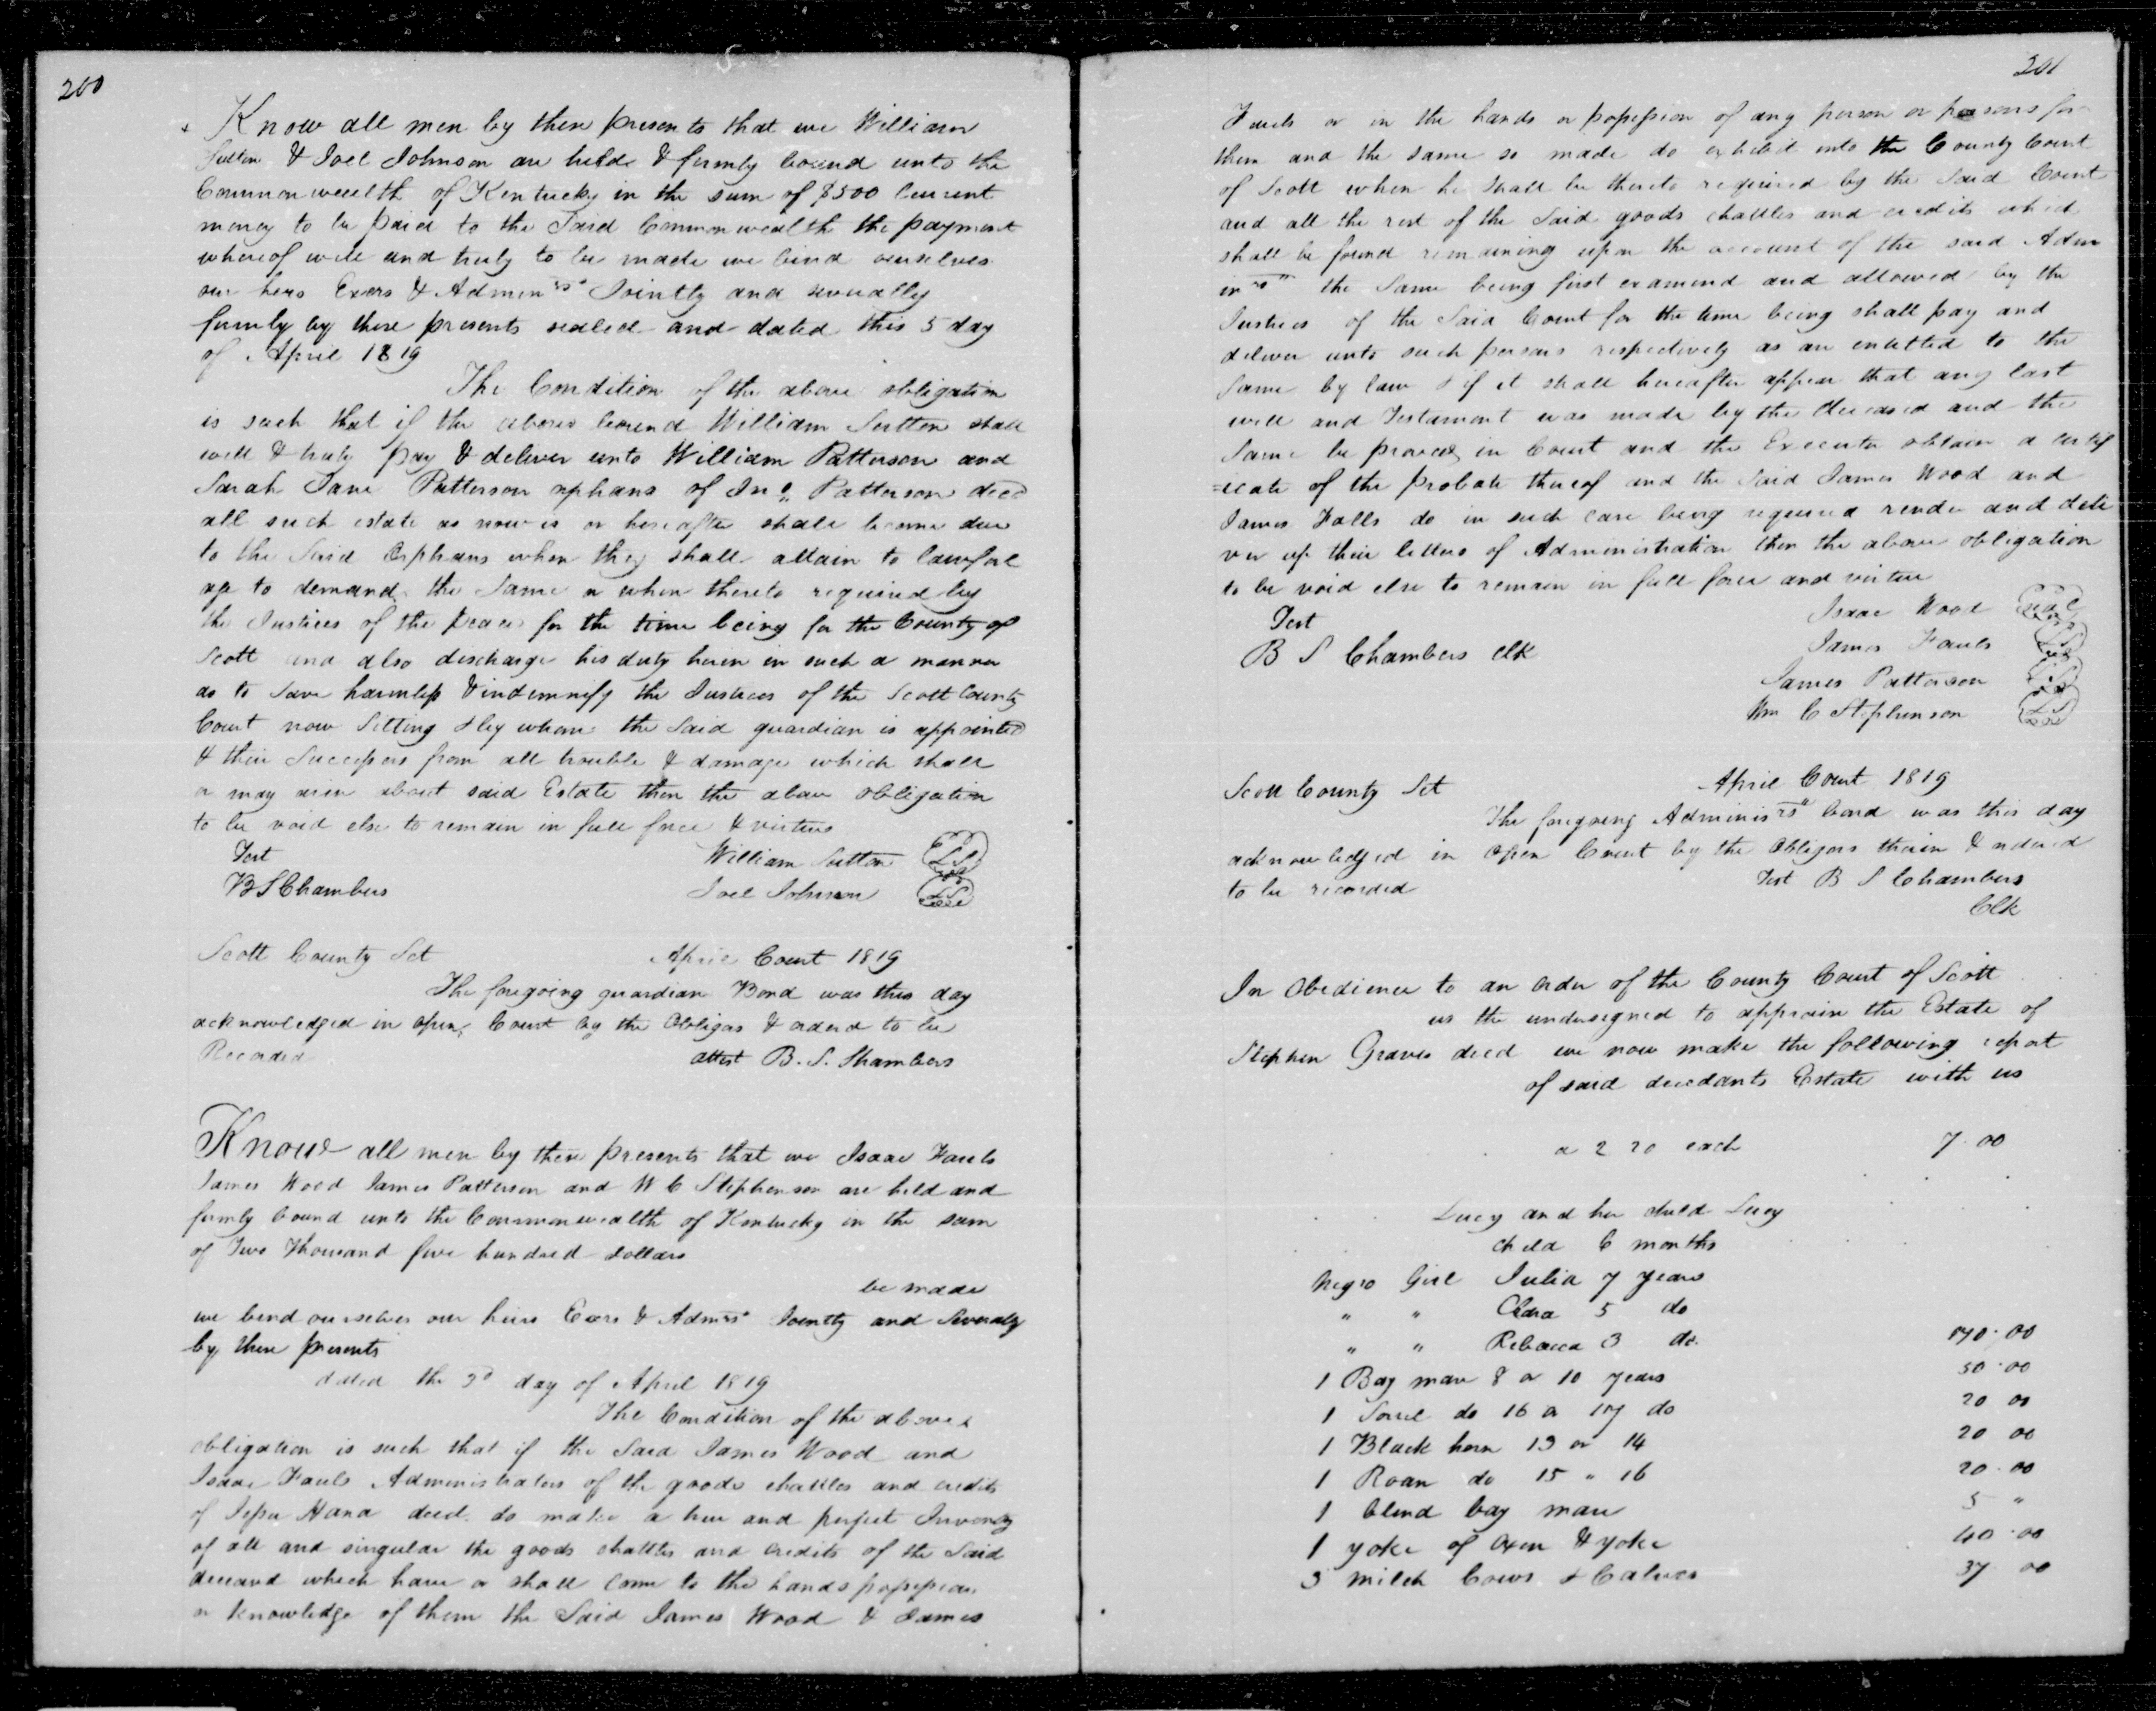 200
Know all men by these presents that we William
Sutton & Joel Johnson are held & firmly bound unto the
Commonwealth of Kentucky in the sum of $500 Current
money to be paid to the Said Commonwealth the payment
whereof well and truly to be made we bind ourselves
our heirs Exers & Adminrs Jointly and severally
firmly by these presents sealed and dated this 5 day
of April 1819
The Condition of the above obligation
is such that if the above bound William Sutton shall
well & truly pay & deliver unto William Patterson and
Sarah Jane Patterson orphans of Jno Patterson decd
all such estate as now is or hereafter shall become due
to the Said Orphans when they shall attain to lawful
age to demand the Same or when thereto required by
the Justices of the peace for the time being for the County of
Scott and also discharge his duty herein in such a manner
as to Save harmless & indemnify the Justices of the Scott County
Court now Sitting & by whom the Said guardian is appointed
& their Successors from all trouble & damage which shall
or may arise about said Estate then the above obligation
to be void else to remain in full force & virtue
Test William Sutton LS
B S Chambers Joel Johnson LS
Scott County Sct April Court 1819
The foregoing guardian Bond was this day
acknowledged in open Court by the Obligors & orderd to be
Recorded attest B. S. Chambers
Know all men by these presents that we Isaac Fauls
James Wood James Patterson and W C Stephenson are held and
firmly bound unto the Commonwealth of Kentucky in the sum
of Two Thousand five hundred dollars
be made
we bend ourselves our heirs Exers & Admrs Jointly and Severaly
by these presents
dated the 3d day of April 1819
The Condition of the above
obligation is such that if the Said James Wood and
Isaac Fauls Administrators of the goods chattles and credits
of Hana decd. do make a true and perfect Inventory
of all and singular the goods chattles and credits of the Said
deceasd which have or shall come to the hands possession
or knowledge of them the Said James Wood & James
201
Fauls or in the hands or possession of any person or persons for
them and the same so made do exhibit into the County Court
of Scott when he shall be thereto required by the Said Court
and all the rest of the Said goods chattles and credits which
shall be found remaining upon the account of the said Adm
inrs the Same being first examind and allowed by the
Justices of the Said Court for the time being shall pay and
deliver unto such persons respectively as are entitled to the
Same by law & if it shall hereafter appear that any last
will and Testament was made by the deceased and the
Same be proved in Court and the Executor obtain a certif
=icate of the probate thereof and the Said James Wood and
James Falls do in such case being required render and deli
ver up their letters of Administration then the above obligation
to be void else to remain in full force and virtue
Test Isaac Wood seal
B S Chambers Clk James Fauls LS
James Patterson LS
Wm C Stephenson LS
Scott County Sct April Court 1819
The foregoing Adminisrs bond was this day
acknowledged in Open Court by the Obligors therein & ordered
to be recorded Test B S Chambers
Clk
In Obedience to an order of the County Court of Scott
us the undersigned to appraise the Estate of
Stephen Graves decd we now make the following report
of said decedants Estate with us
a 2 20 each 7.00
Lucy and her child Lucy
child 6 months
Negro Girl Julia 7 years
" " Clara 5 do
" " Rebecca 3 do. 170.00
1 Bay mare 8 or 10 years 50.00
1 Sorrel do 16 or 17 do 20 00
1 Black horse 13 or 14 20 00
1 Roan do 15 " 16 20.00
1 blind bay mare 5 "
1 yoke of Oxen & yoke 40.00
3 milch Cows & Calves 37 00